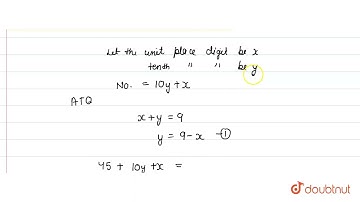 Let the unit place digit be x
tenth " " be y
No. = 10y+x
ATQ
x+y = 9
y = 9-x -①
45 + 10y+x =
doubtnut